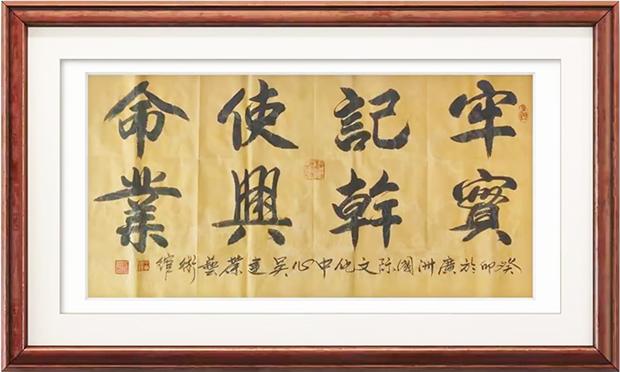 牢記使命
實幹興業
癸卯於廣洲國际文化中心吴藝術館